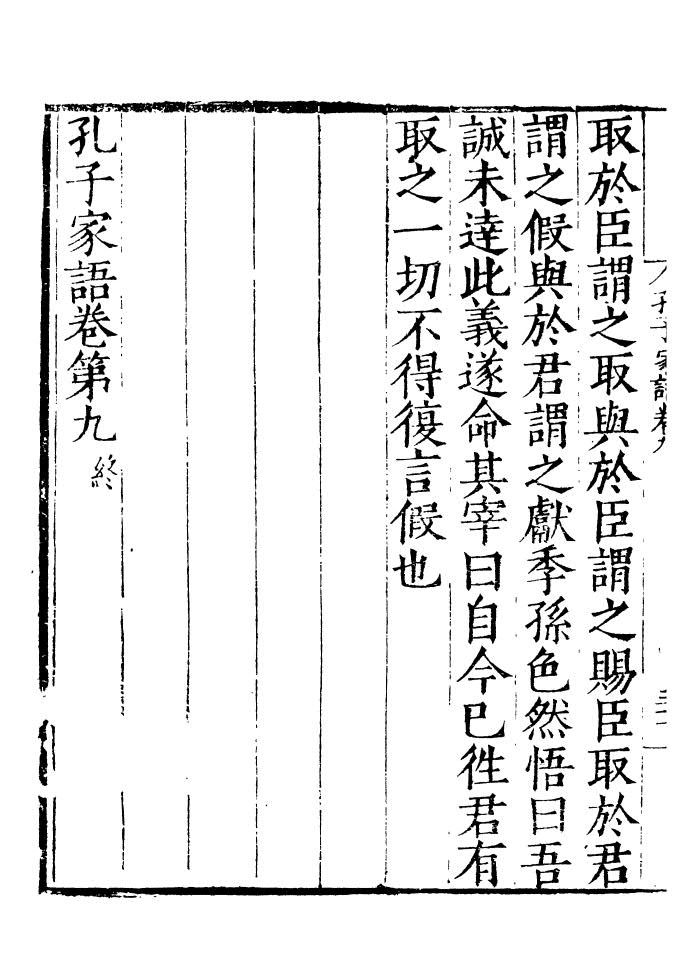 取於臣謂之取與於臣謂之賜臣取於君
謂之假與於君謂之獻季孫色然悟曰吾
誠未達此義遂命其宰曰自今已徃君有
取之一切不得復言假也
孔子家語卷第九終
孔子家語卷九